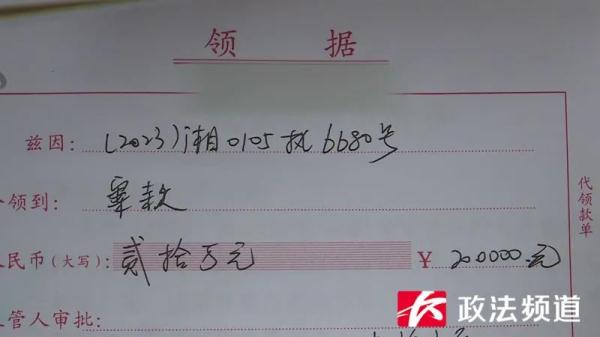 领 据
兹因：(2023)湘0105执6680号
领到：案款
民币(大写)：贰拾万元 ¥ 200000.元
管人审批：
代领款单
政法频道